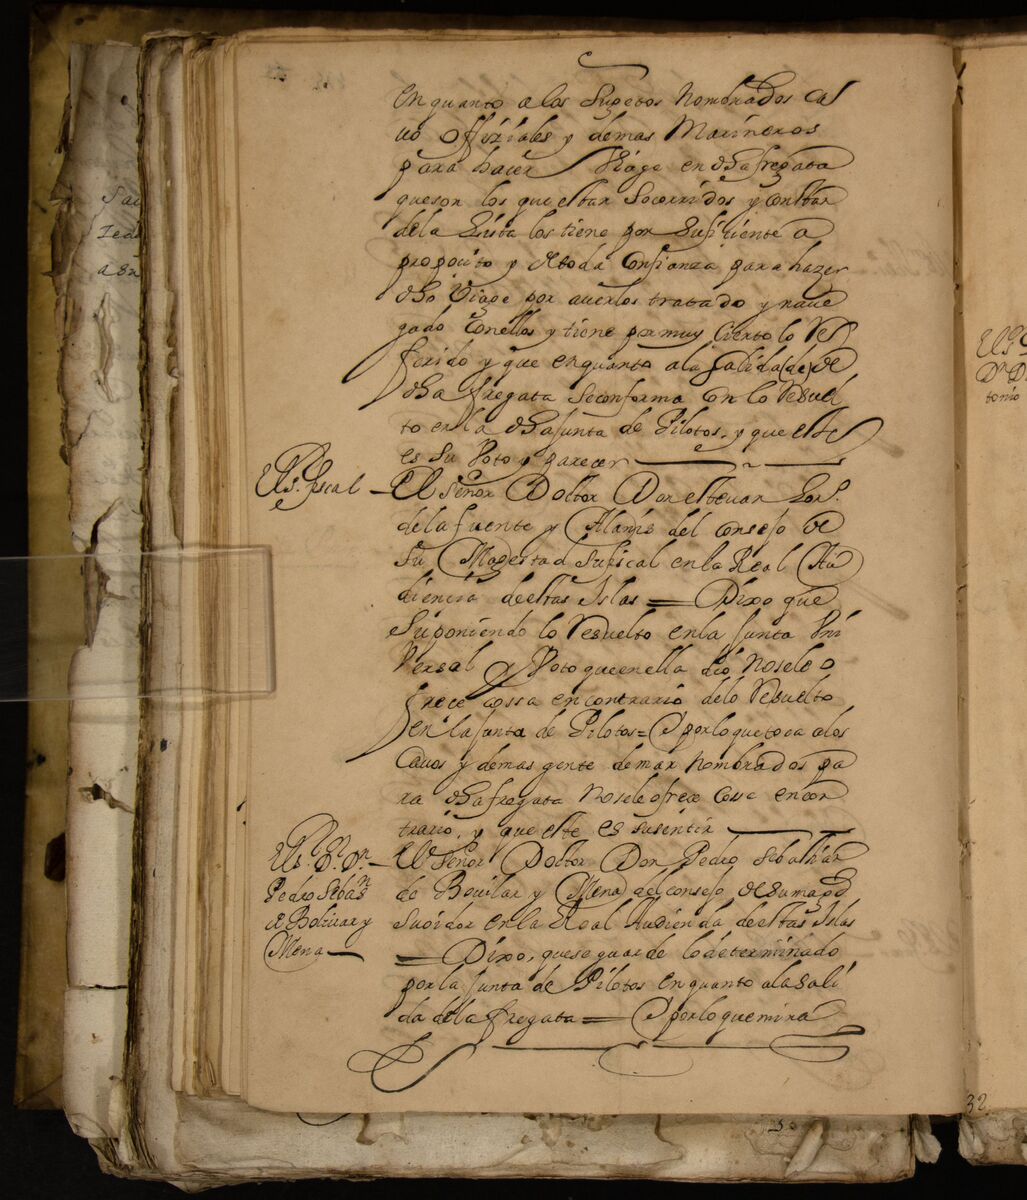 en quanto a los Sugetos Nombrados Ca
uo Offiziales y demas Marineros
para hacer Viage en dha fregata
que son los que estan Socorridos y constan
de la Lista los tiene por Sufiziente a
proposito y de toda Confianza para hazer
dho Viage por auerlos tratado y naue
gado con ellos y tiene por muy cierto lo Re
ferido y que en quanto a la Salida (de) de
dha fregata se conforma con lo Resuel
to en la dha Junta de Pilotos, y que este
es su Voto y parecer
El Sr. fiscal
El Señor Doctor Don esteuan Lor.
de la fuente y Alanis del consejo de
Su Magestad Su fiscal en la Real Au
diencia de estas Islas = Dixo que
Suponiendo lo Resuelto en la Junta Vni
Versal y Voto que en ella dio No se le o
frece cossa en contrario de lo Resuelto
en la Junta de Pilotos = Y por lo que toca a los
Cauos y demas gente de mar Nombrados pa
ra dha fregata No se le ofrece cossa en con
trario, y que este es su sentir
El Sr. Dr. Dn.
Pedro Seban
de Boliuar y
Mena
El Señor Doctor Don Pedro Sebastian
de Boliuar y Mena del consejo de su magd
su oidor en la Real Audiencia de estas Islas
= Dixo, que se guarde lo determinado
por la Junta de Pilotos en quanto a la Sali
da de la fregata = Y por lo que mira
32